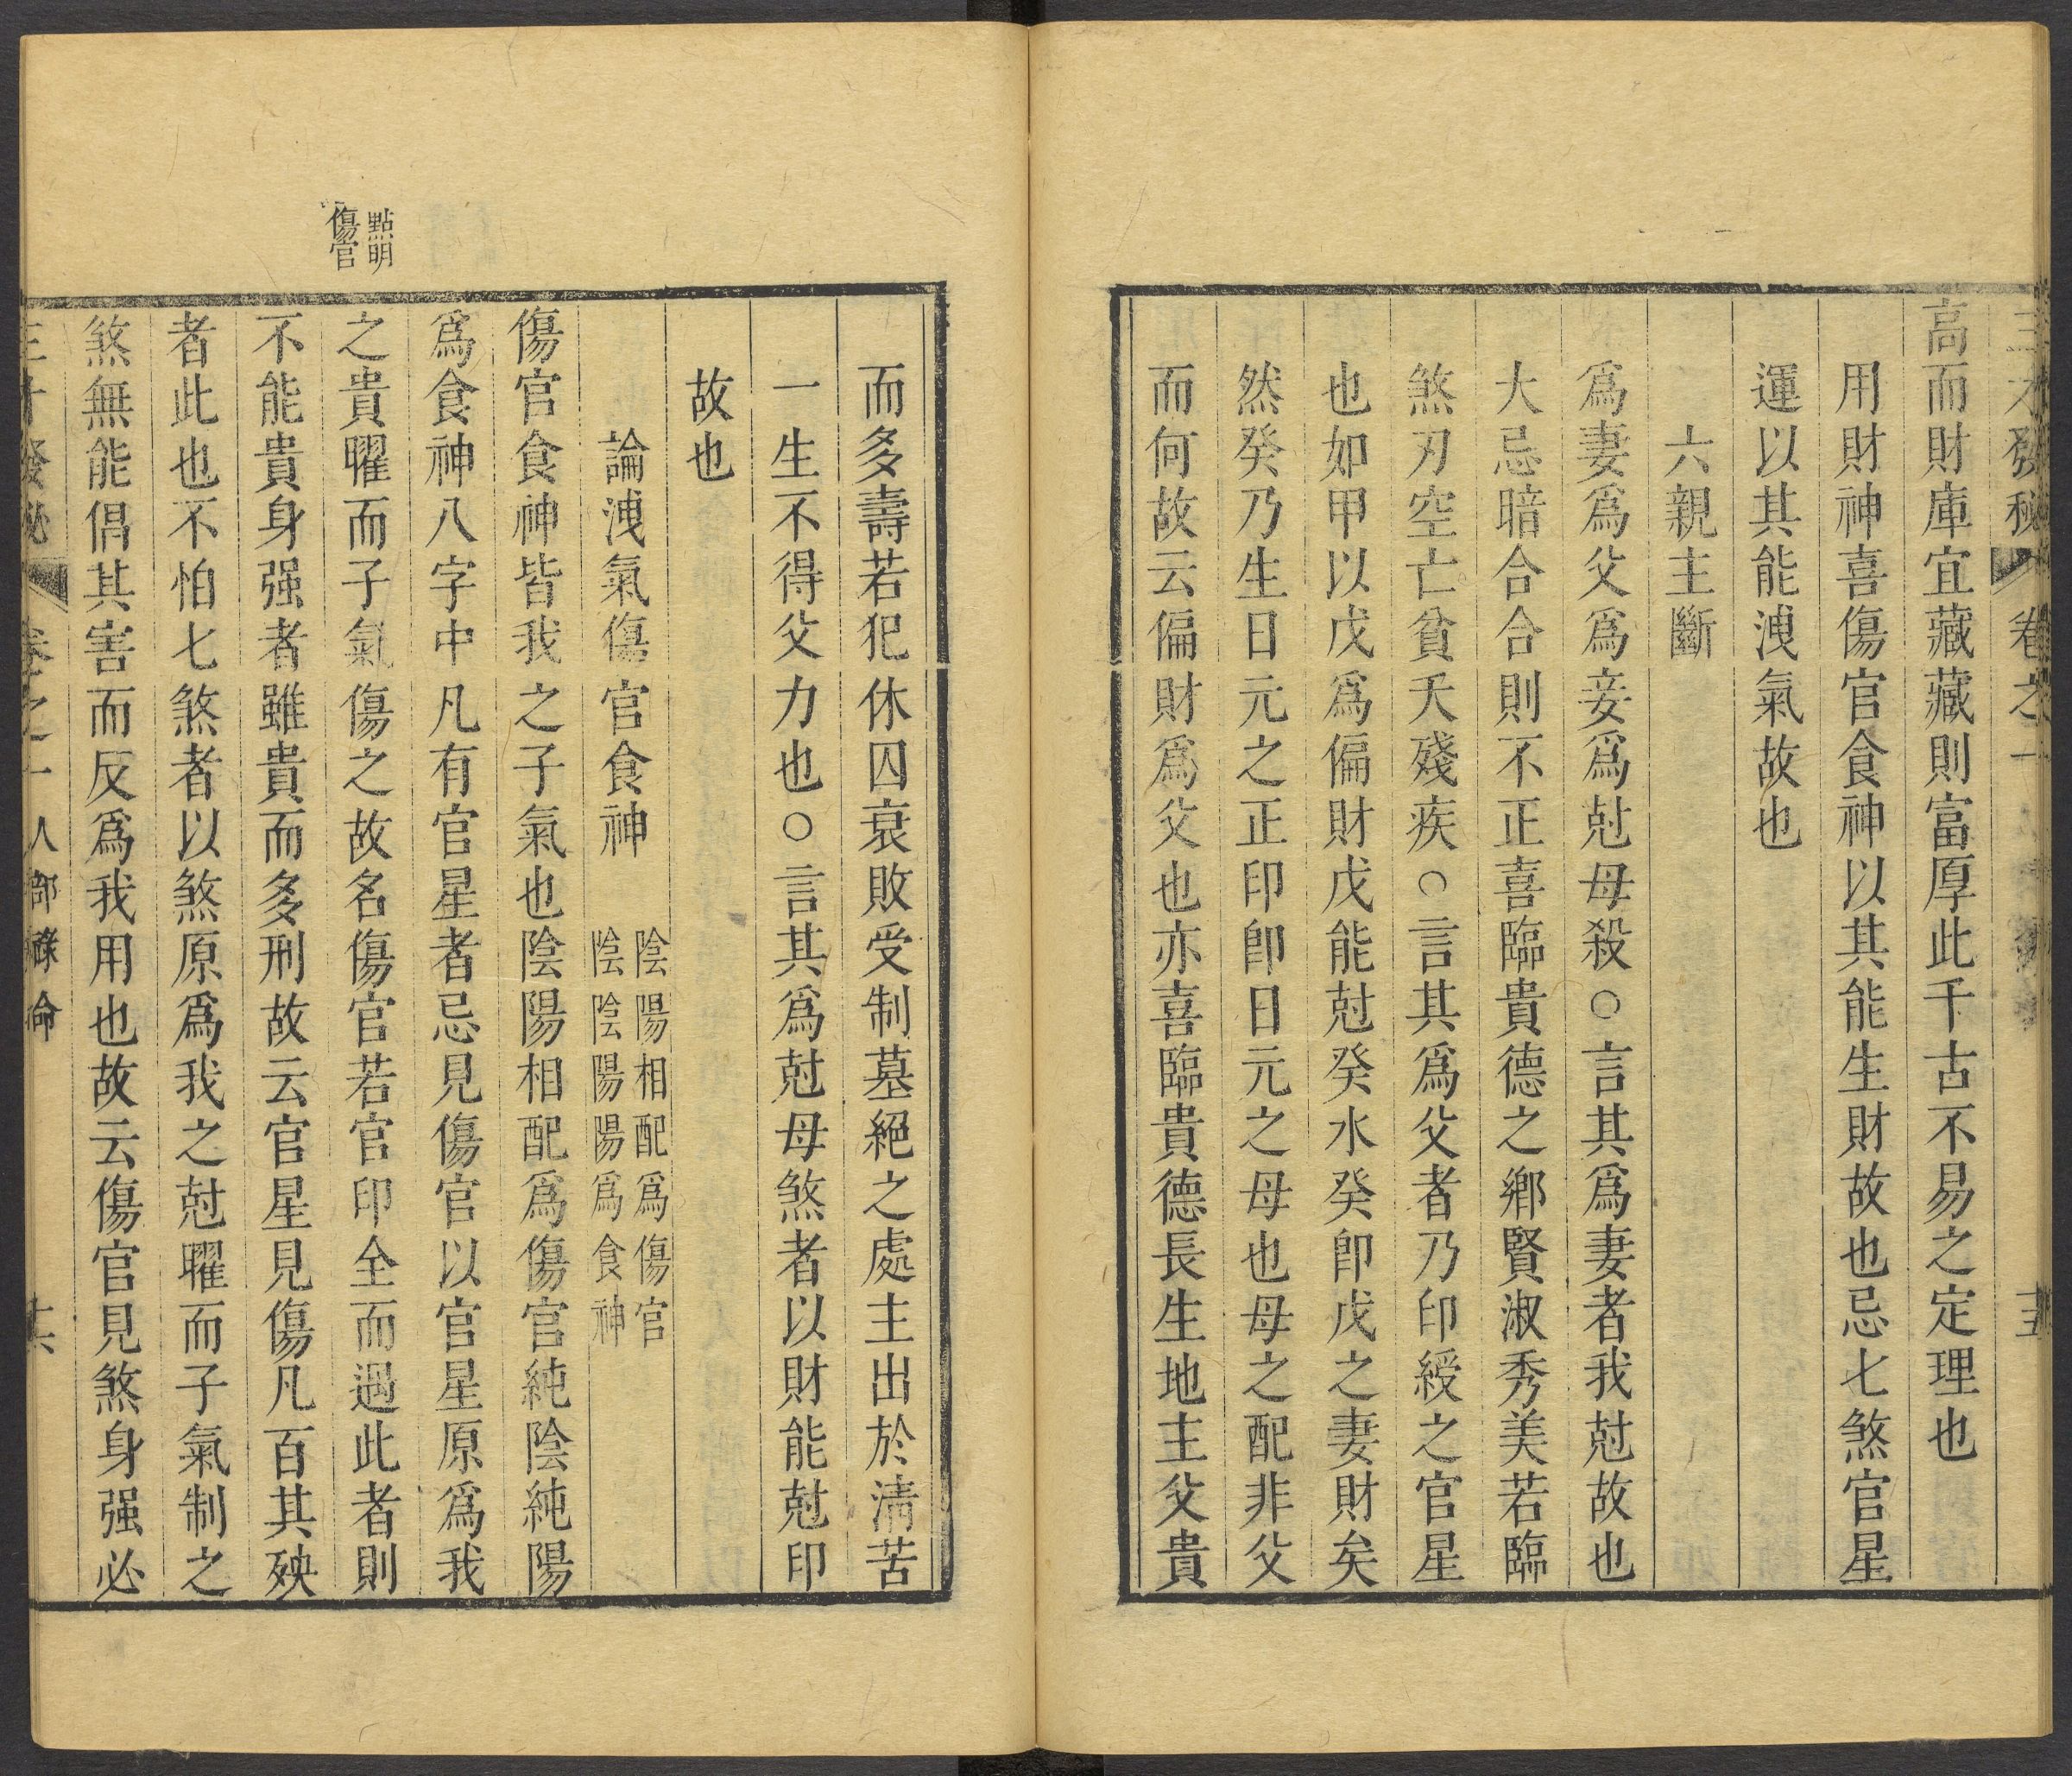 三才發秘 卷之一 十五
高而財庫宜藏藏則富厚此千古不易之定理也
用財神喜傷官食神以其能生財故也忌七煞官星
運以其能洩氣故也
六親主斷
爲妻爲父爲妾爲尅母殺○言其爲妻者我尅故也
大忌暗合合則不正喜臨貴德之鄉賢淑秀美若臨
煞刃空亡貧夭殘疾○言其爲父者乃印綬之官星
也如甲以戊爲偏財戊能尅癸水癸卽戊之妻財矣
然癸乃生日元之正印卽日元之母也母之配非父
而何故云偏財爲父也亦喜臨貴德長生地主父貴
而多壽若犯休囚衰敗受制墓絕之處主出於淸苦
一生不得父力也○言其爲尅母煞者以財能尅印
故也
論洩氣傷官食神 陰陽相配爲傷官
陰陰陽陽爲食神
傷官食神皆我之子氣也陰陽相配爲傷官純陰純陽
爲食神八字中凡有官星者忌見傷官以官星原爲我
點明
傷官
之貴曜而子氣傷之故名傷官若官印全而遇此者則
不能貴身强者雖貴而多刑故云官星見傷凡百其殃
者此也不怕七煞者以煞原爲我之尅曜而子氣制之
煞無能倡其害而反爲我用也故云傷官見煞身强必
三才發秘 卷之一 人部祿命 十六